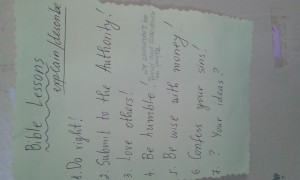 Bible Lessons
explain/describe
1. Do right!
2. Submit to the Authority!
3. Love others!
4. Be humble
5. Be wise with money!
6 Confess your sins!
7. ? Your ideas?